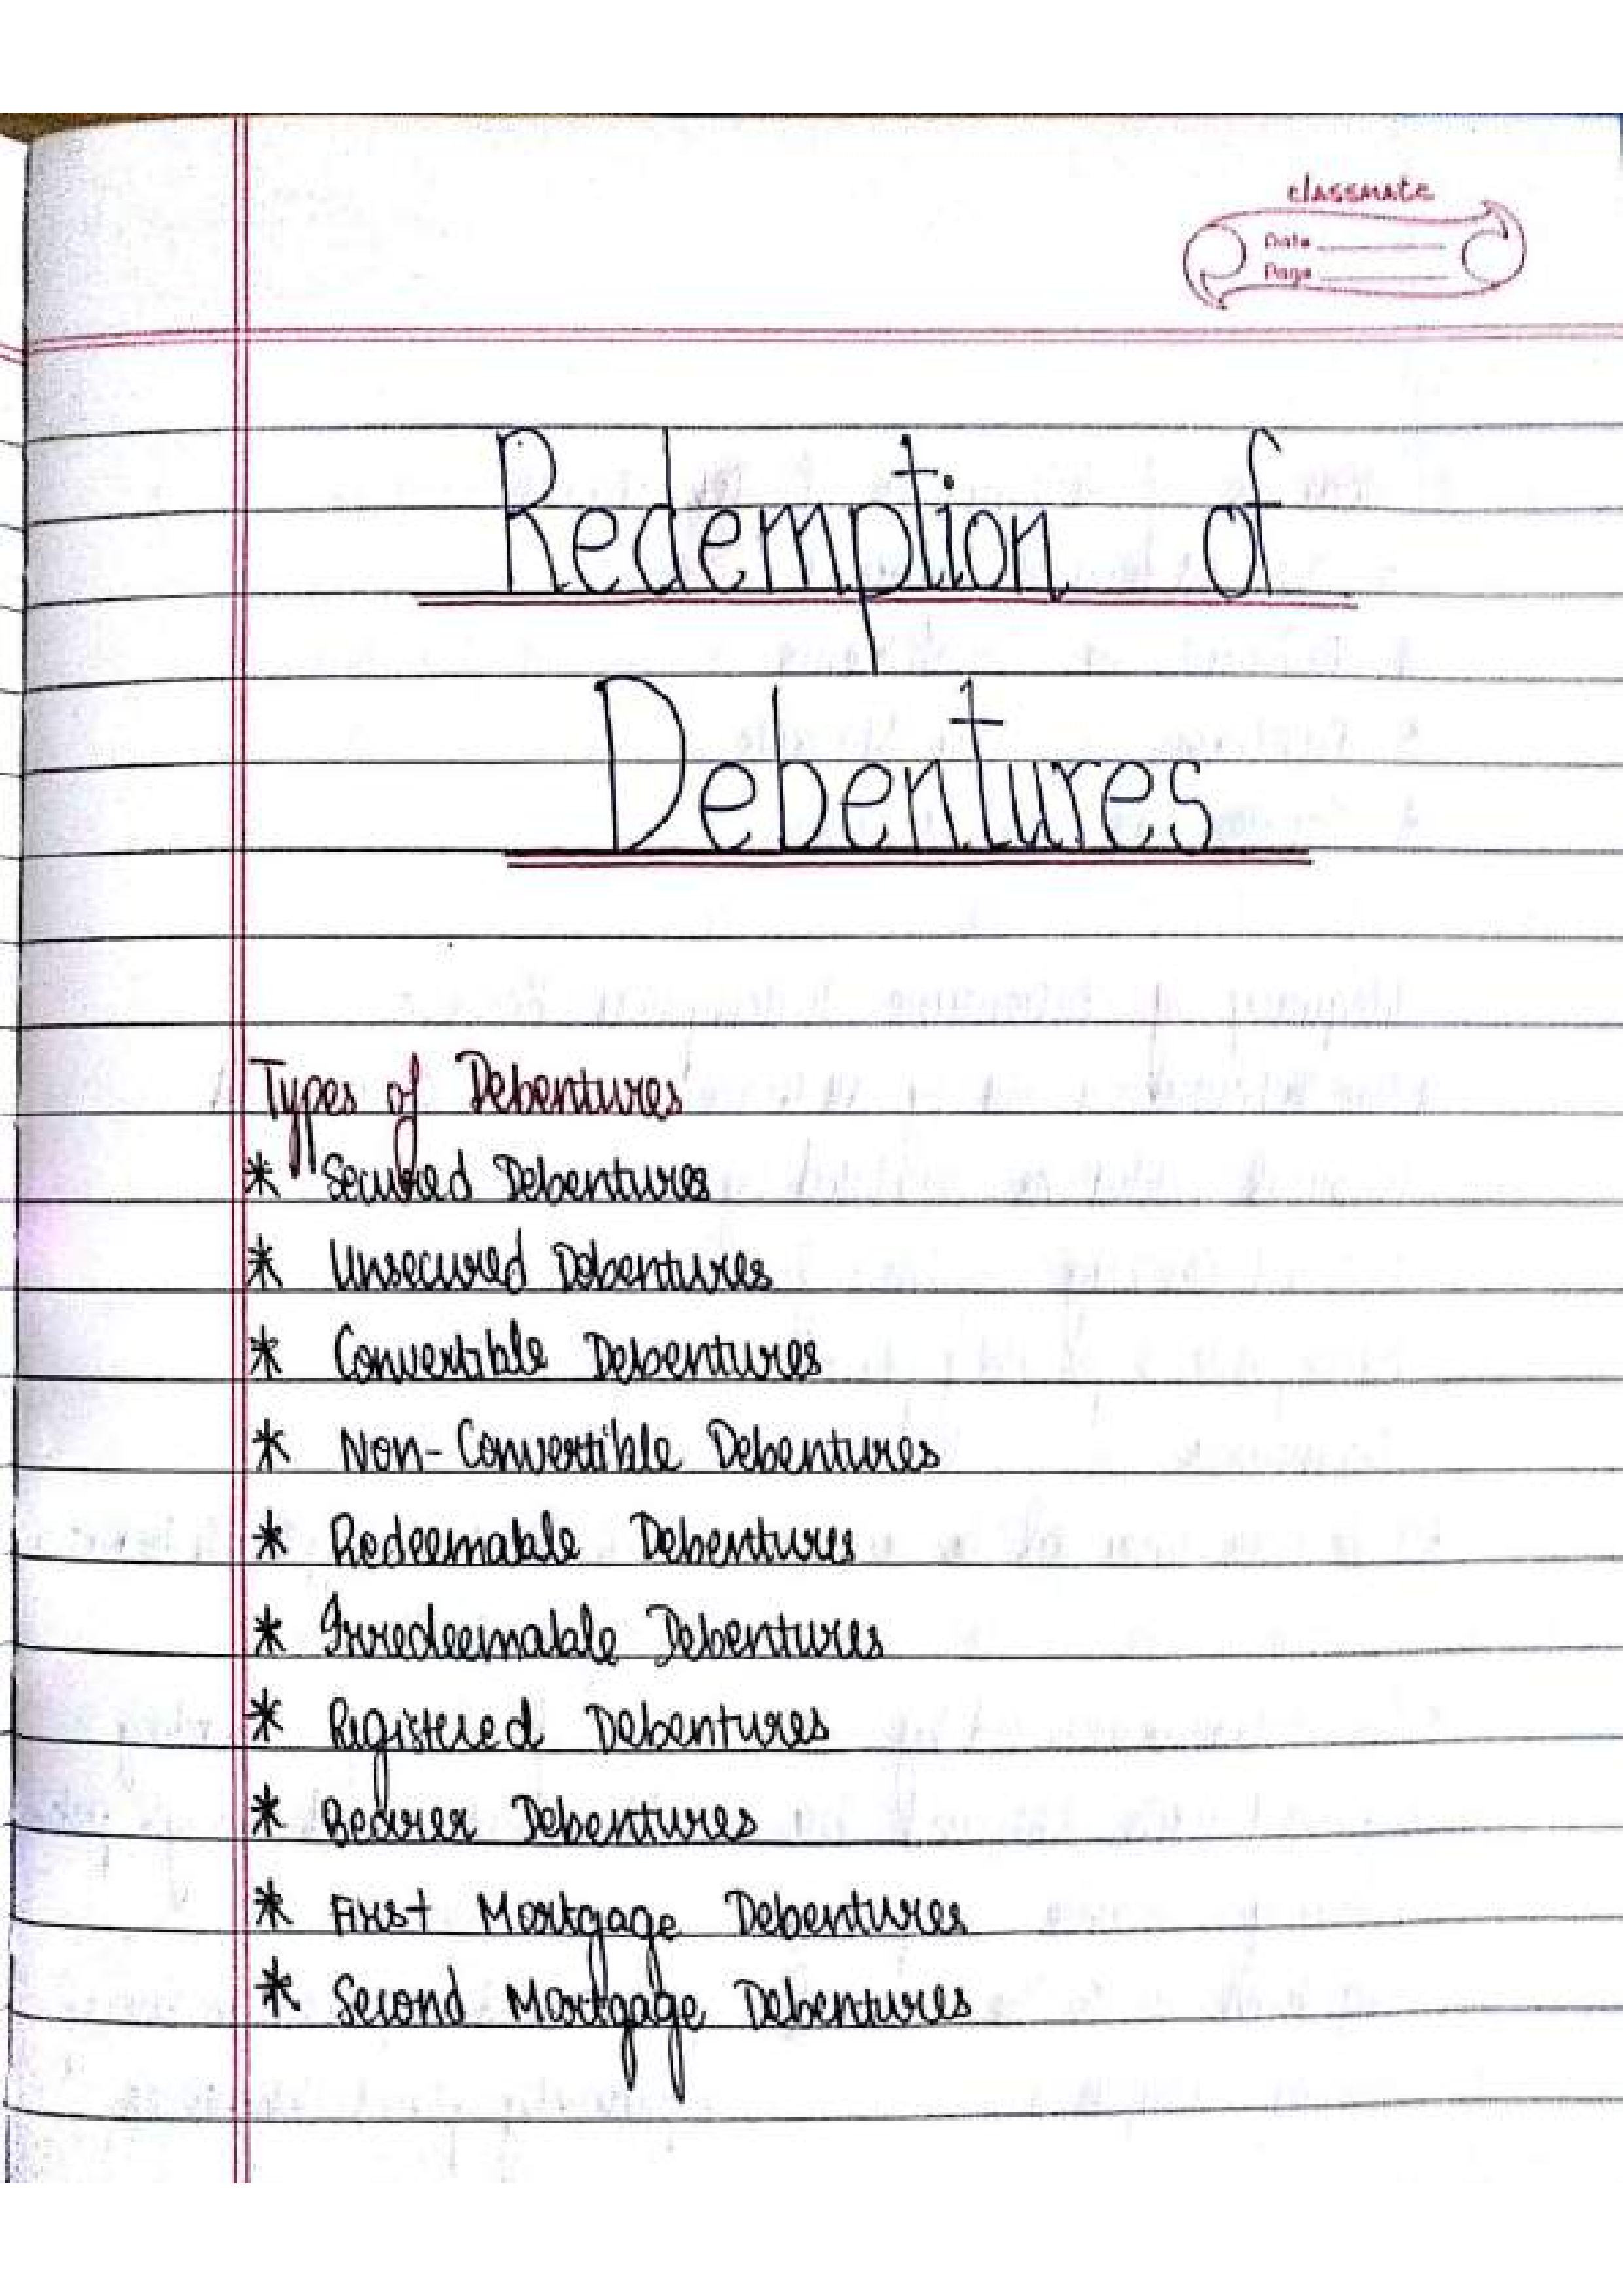 classmate
Date
Page
Redemption of
Debentures
Types of Debentures
* Secured Debentures
* Unsecured Debentures
* Convertible Debentures
* Non-Convertible Debentures
* Redeemable Debentures
* Irredeemable Debentures
* Registered Debentures
* Bearer Debentures
* First Mortgage Debentures
* Second Mortgage Debentures